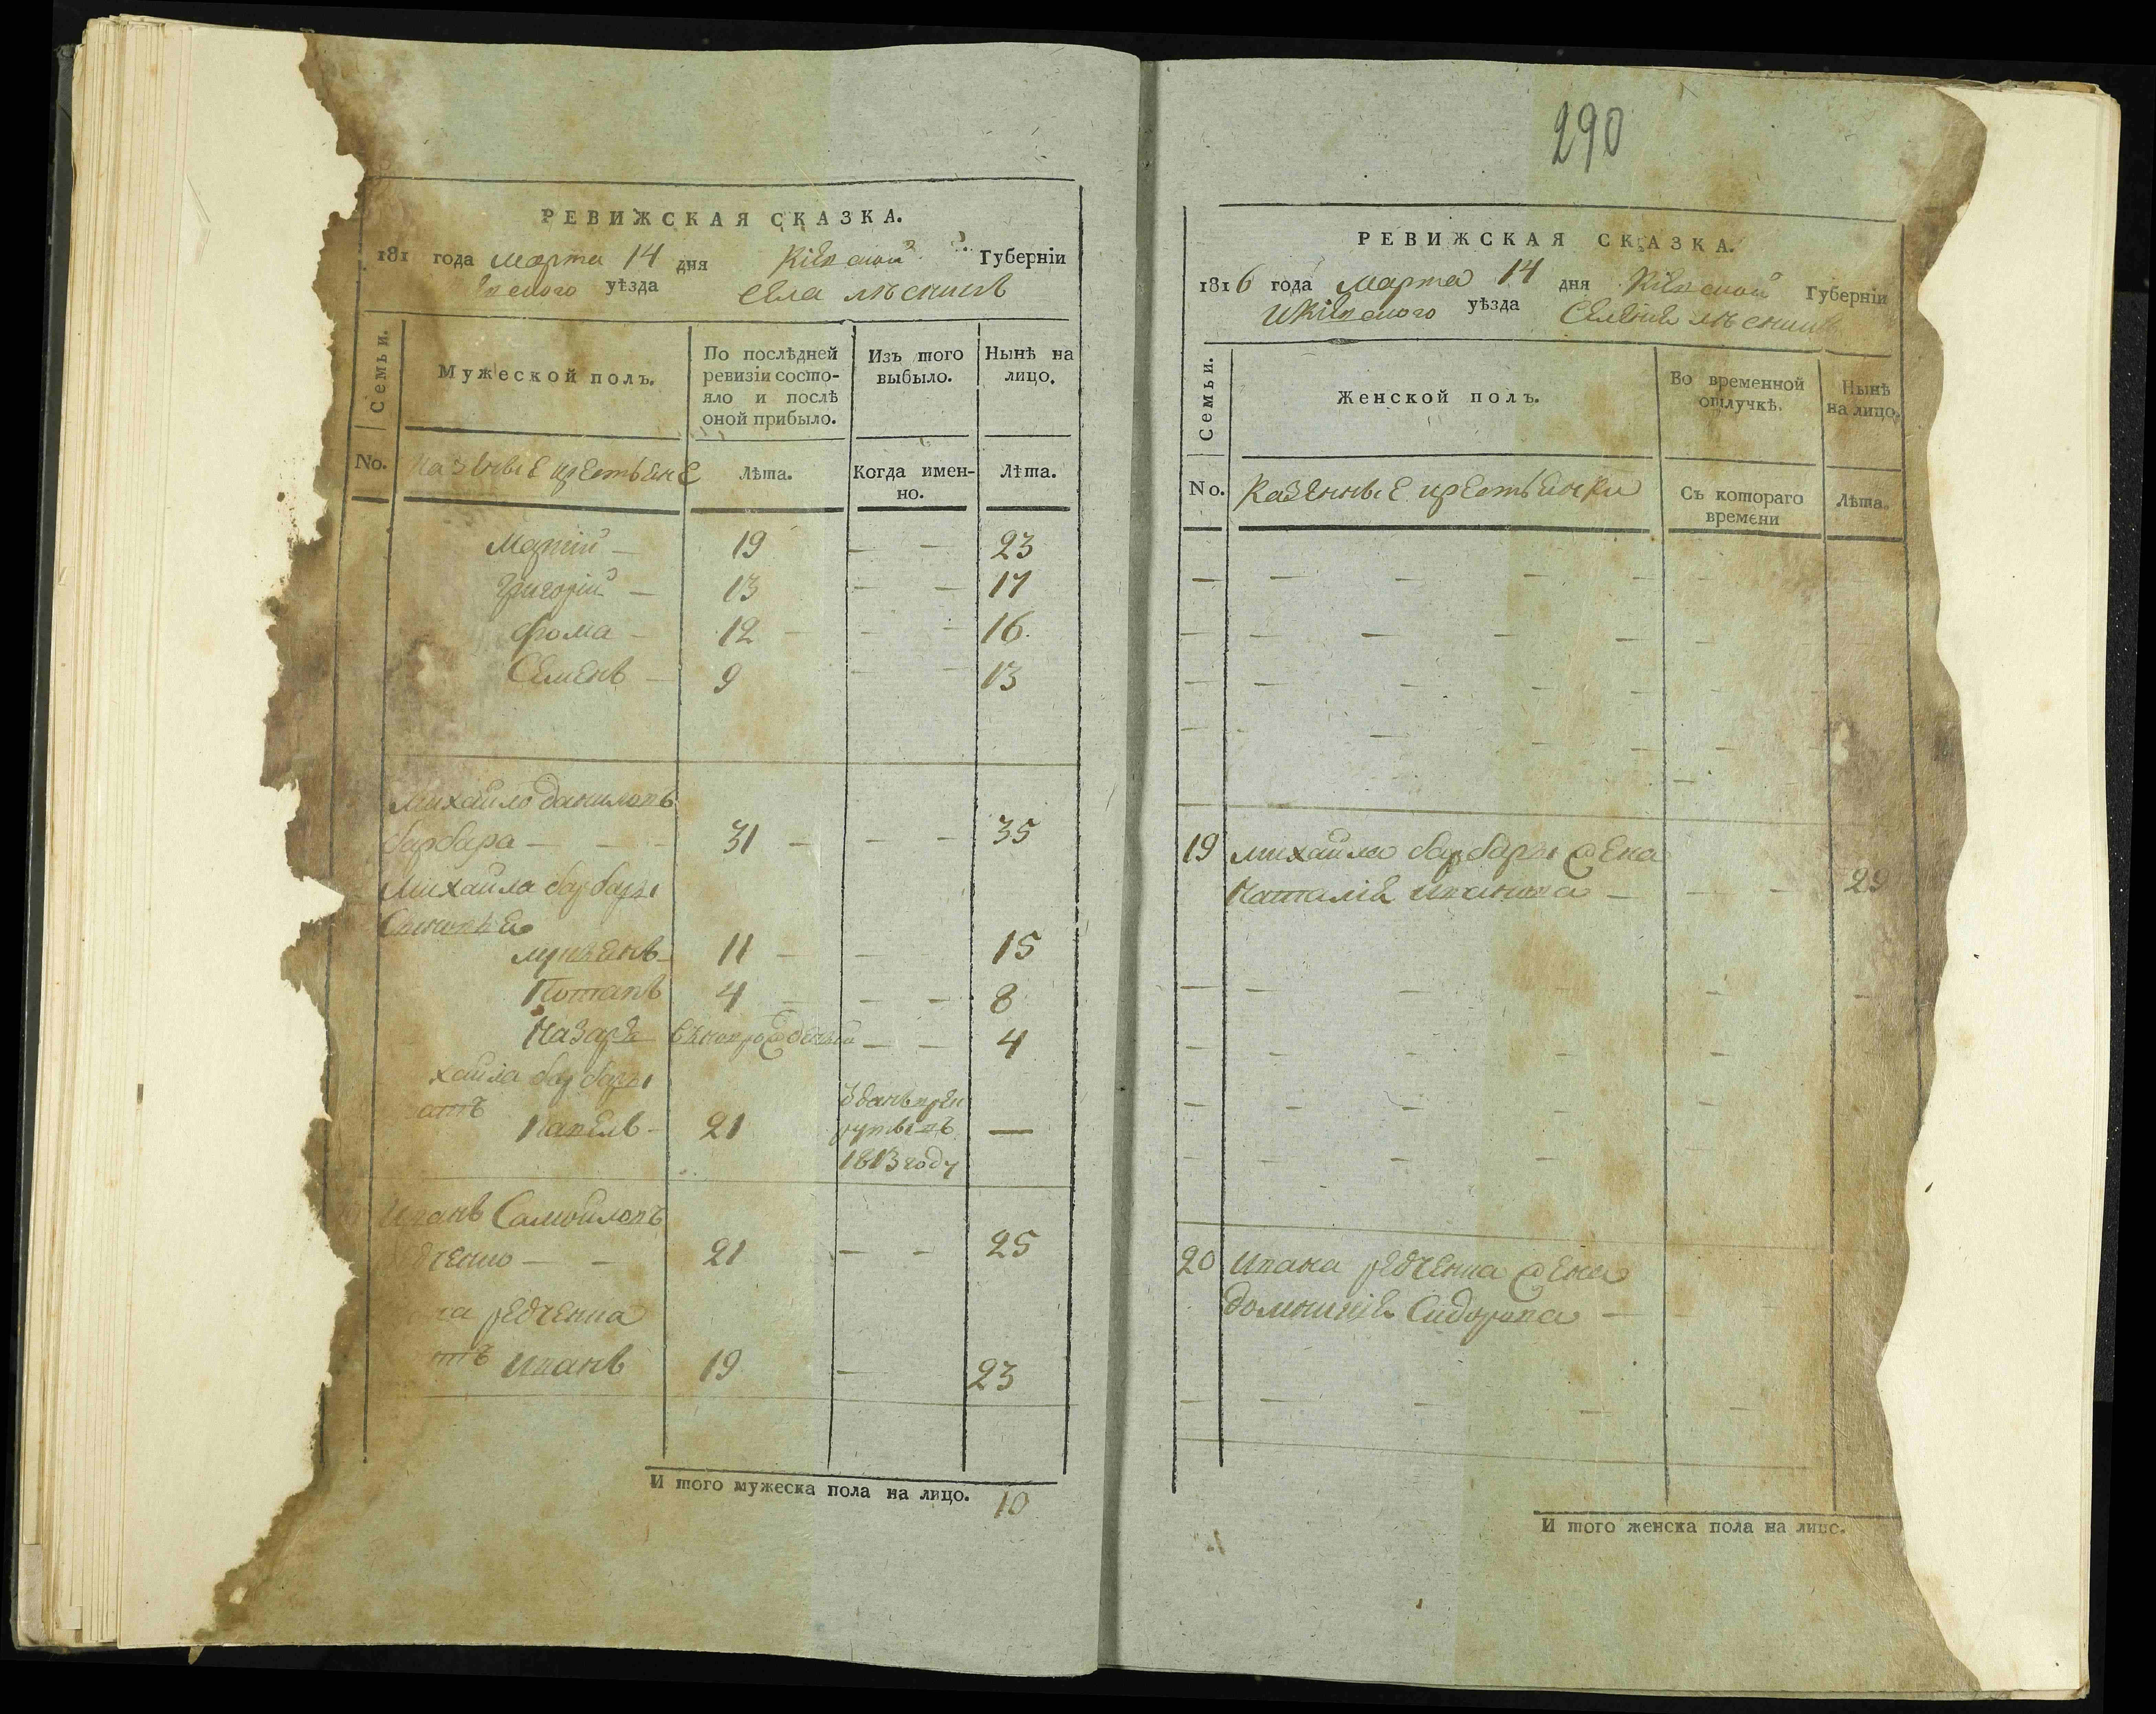 290
РЕВИЖСКАЯ СКАЗКА.
181 года марта 14 дня Кіевской Губерніи
уѣзда села
Семьи.
Мужеской полъ.
По послѣдней ревизіи состо-
яло и послѣ
оной прибыло.
Изъ того
выбыло.
Нынѣ на
лицо.
No.
казенные крестьяне
Лѣта.
Когда имен-
но.
Лѣта.
19 — — 23
Григорій — 13 — — 17
Фома — 12 — — — 16
Семенъ — 9 — — 13
Михайло Даниловъ
барбара — — — 31 — — — 35
Михайла барбары
Сыновья
11 — — 15
Потапъ 4 — — — 8
Назаръ — — 4
хайла барбары
братъ
Павелъ — 21 —
отданъ врек
руты въ
1813 году
Иванъ Самойловъ
едченко — — 21 — — 25
на редченка
тъ Иванъ 19 — 23
И того мужеска пола на лицо. 10
РЕВИЖСКАЯ СКАЗКА.
1816 года марта 14 дня Кіевской Губерніи
Икіевского уѣзда Селенія
Семьи.
Женской полъ.
Во временной
отлучкѣ.
Нынѣ
на лицо.
No.
Казенные крестьянки
Съ котораго
времени
Лѣта.
19 михайла барбары жена
Наталія Иванова — — — 29
20 Ивана редченка жена
Домникія Сидорова —
И того женска пола на лицо.